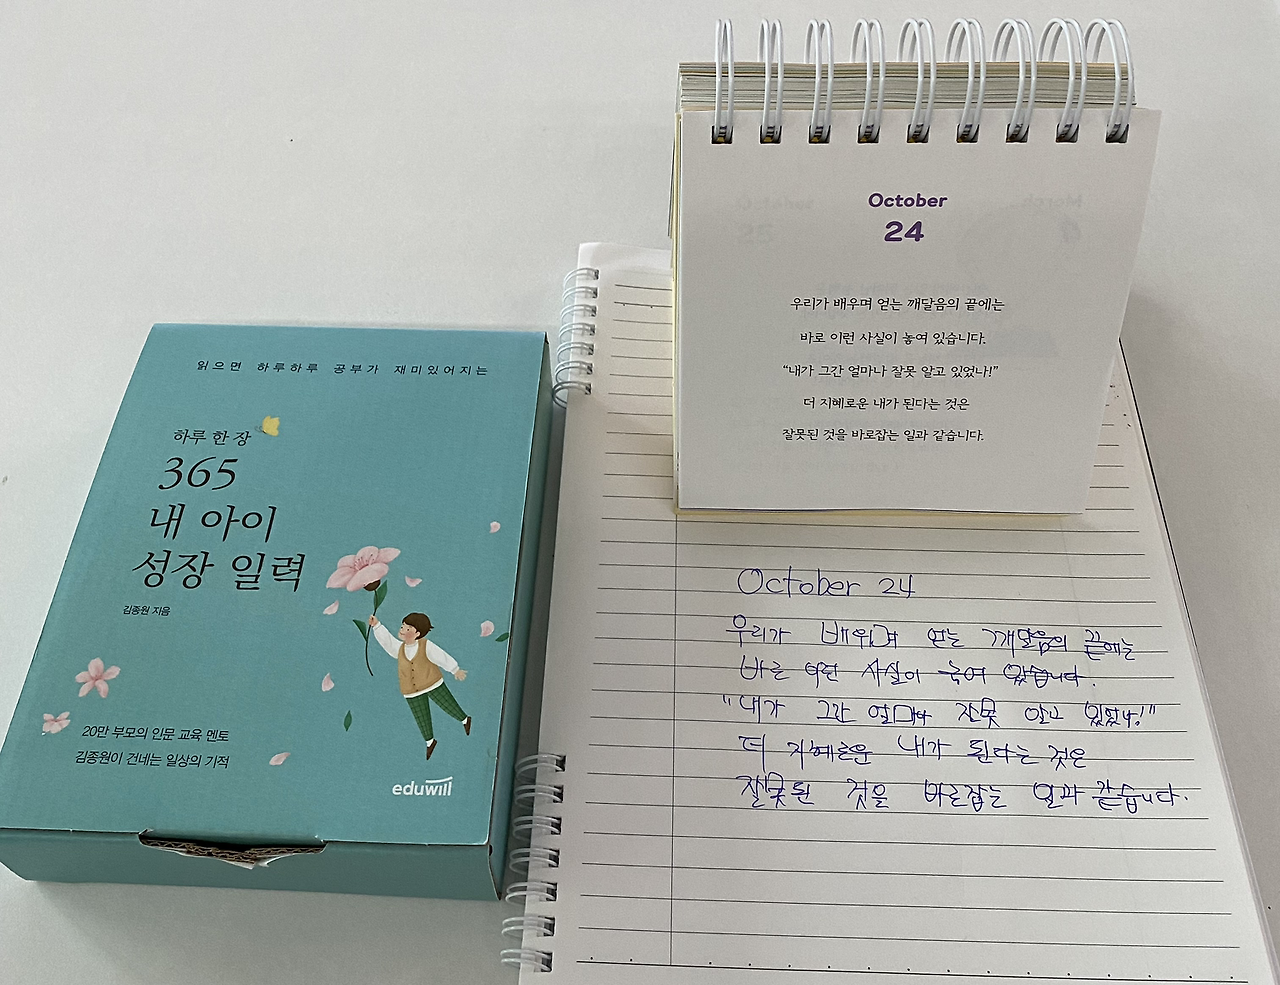 읽으면 하루하루 공부가 재미있어지는
하루 한 장
365
내 아이
성장 일력
김종원 지음
20만 부모의 인문 교육 멘토
김종원이 건네는 일상의 기적
eduwill
October
24
우리가 배우며 얻는 깨달음의 끝에는
바로 이런 사실이 놓여 있습니다.
“내가 그간 얼마나 잘못 알고 있었나!”
더 지혜로운 내가 된다는 것은
잘못된 것을 바로잡는 일과 같습니다.
October 24
우리가 배우며 얻는 깨달음의 끝에는
바로 이런 사실이 놓여 있습니다.
"내가 그간 얼마나 잘못 알고 있었나!"
더 지혜로운 내가 된다는 것은
잘못된 것을 바로잡는 일과 같습니다.